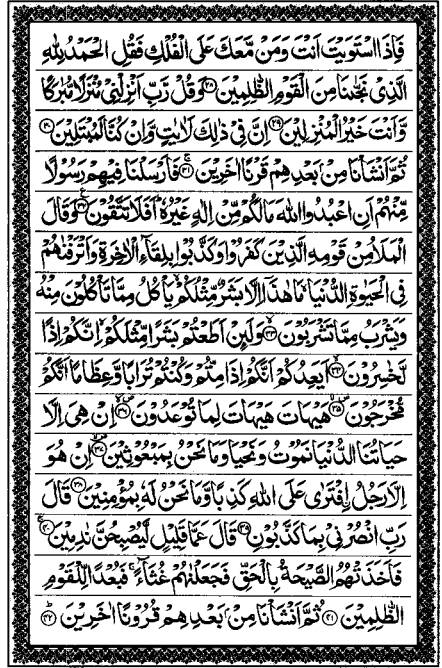 فَاِذَا اسْتَوَيْتَ اَنْتَ وَمَنْ مَّعَكَ عَلَى الْفُلْكِ فَقُلِ الْحَمْدُ لِلّٰهِ
الَّذِيْ نَجّٰىنَا مِنَ الْقَوْمِ الظّٰلِمِيْنَ ﴿٢٨﴾ وَقُلْ رَّبِّ اَنْزِلْنِيْ مُنْزَلًا مُّبٰرَكًا
وَّاَنْتَ خَيْرُ الْمُنْزِلِيْنَ ﴿٢٩﴾ اِنَّ فِيْ ذٰلِكَ لَاٰيٰتٍ وَّاِنْ كُنَّا لَمُبْتَلِيْنَ ﴿٣٠﴾
ثُمَّ اَنْشَاْنَا مِنْۢ بَعْدِهِمْ قَرْنًا اٰخَرِيْنَ ﴿٣١﴾ فَاَرْسَلْنَا فِيْهِمْ رَسُوْلًا
مِّنْهُمْ اَنِ اعْبُدُوا اللّٰهَ مَا لَكُمْ مِّنْ اِلٰهٍ غَيْرُهٗ اَفَلَا تَتَّقُوْنَ ﴿٣٢﴾ وَقَالَ
الْمَلَاُ مِنْ قَوْمِهِ الَّذِيْنَ كَفَرُوْا وَكَذَّبُوْا بِلِقَآءِ الْاٰخِرَةِ وَاَتْرَفْنٰهُمْ
فِي الْحَيٰوةِ الدُّنْيَا مَا هٰذَآ اِلَّا بَشَرٌ مِّثْلُكُمْ يَاْكُلُ مِمَّا تَاْكُلُوْنَ مِنْهُ
وَيَشْرَبُ مِمَّا تَشْرَبُوْنَ ﴿٣٣﴾ وَلَئِنْ اَطَعْتُمْ بَشَرًا مِّثْلَكُمْ اِنَّكُمْ اِذًا
لَّخٰسِرُوْنَ ﴿٣٤﴾ اَيَعِدُكُمْ اَنَّكُمْ اِذَا مِتُّمْ وَكُنْتُمْ تُرَابًا وَّعِظَامًا اَنَّكُمْ
مُّخْرَجُوْنَ ﴿٣٥﴾ هَيْهَاتَ هَيْهَاتَ لِمَا تُوْعَدُوْنَ ﴿٣٦﴾ اِنْ هِيَ اِلَّا
حَيَاتُنَا الدُّنْيَا نَمُوْتُ وَنَحْيَا وَمَا نَحْنُ بِمَبْعُوْثِيْنَ ﴿٣٧﴾ اِنْ هُوَ
اِلَّا رَجُلُ اِۨفْتَرٰى عَلَى اللّٰهِ كَذِبًا وَّمَا نَحْنُ لَهٗ بِمُؤْمِنِيْنَ ﴿٣٨﴾ قَالَ
رَبِّ انْصُرْنِيْ بِمَا كَذَّبُوْنِ ﴿٣٩﴾ قَالَ عَمَّا قَلِيْلٍ لَّيُصْبِحُنَّ نٰدِمِيْنَ ﴿٤٠﴾
فَاَخَذَتْهُمُ الصَّيْحَةُ بِالْحَقِّ فَجَعَلْنٰهُمْ غُثَآءً فَبُعْدًا لِّلْقَوْمِ
الظّٰلِمِيْنَ ﴿٤١﴾ ثُمَّ اَنْشَاْنَا مِنْۢ بَعْدِهِمْ قُرُوْنًا اٰخَرِيْنَ ﴿٤٢﴾